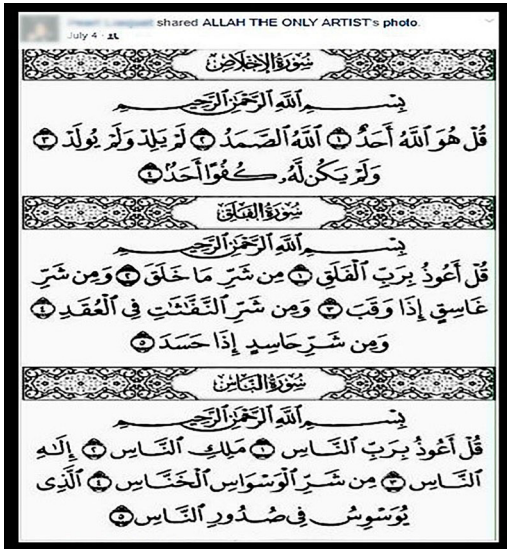 shared ALLAH THE ONLY ARTIST's photo.
July 4
سورة الإخلاص
بِسْمِ اللَّهِ الرَّحْمَٰنِ الرَّحِيمِ
قُلْ هُوَ اللَّهُ أَحَدٌ ١ اللَّهُ الصَّمَدُ ٢ لَمْ يَلِدْ وَلَمْ يُولَدْ ٣
وَلَمْ يَكُن لَّهُ كُفُوًا أَحَدٌ ٤
سورة الفلق
بِسْمِ اللَّهِ الرَّحْمَٰنِ الرَّحِيمِ
قُلْ أَعُوذُ بِرَبِّ الْفَلَقِ ١ مِن شَرِّ مَا خَلَقَ ٢ وَمِن شَرِّ
غَاسِقٍ إِذَا وَقَبَ ٣ وَمِن شَرِّ النَّفَّاثَاتِ فِي الْعُقَدِ ٤
وَمِن شَرِّ حَاسِدٍ إِذَا حَسَدَ ٥
سورة الناس
بِسْمِ اللَّهِ الرَّحْمَٰنِ الرَّحِيمِ
قُلْ أَعُوذُ بِرَبِّ النَّاسِ ١ مَلِكِ النَّاسِ ٢ إِلَٰهِ
النَّاسِ ٣ مِن شَرِّ الْوَسْوَاسِ الْخَنَّاسِ ٤ الَّذِي
يُوَسْوِسُ فِي صُدُورِ النَّاسِ ٥